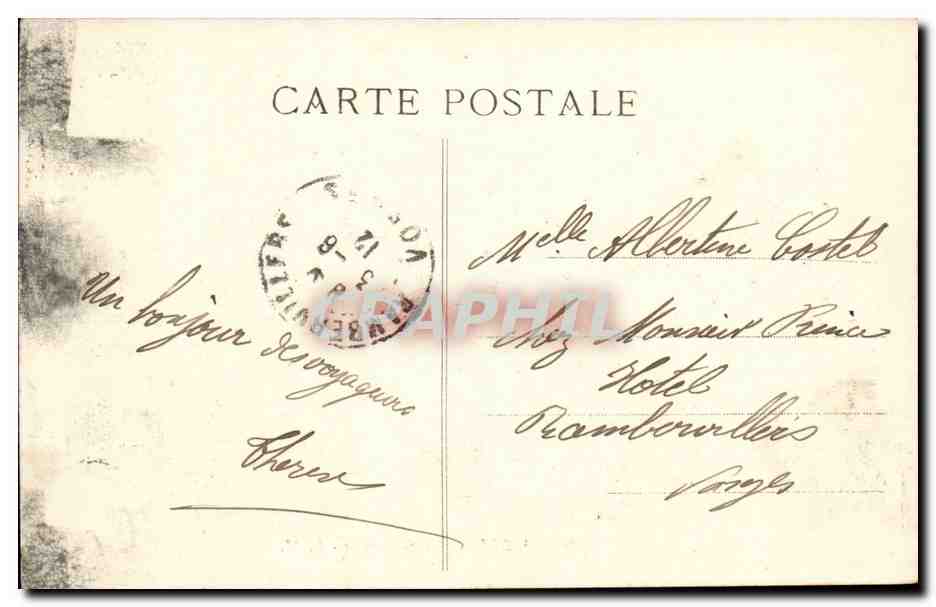 CARTE POSTALE
Un bonjour
des voyageurs
Therese
Melle Albertine Costel
chez Monsieur Prince
Hotel
Rambervillers
Vosges
RAMBERVILLERS VOSGES
12
8
3
GRAPHIL